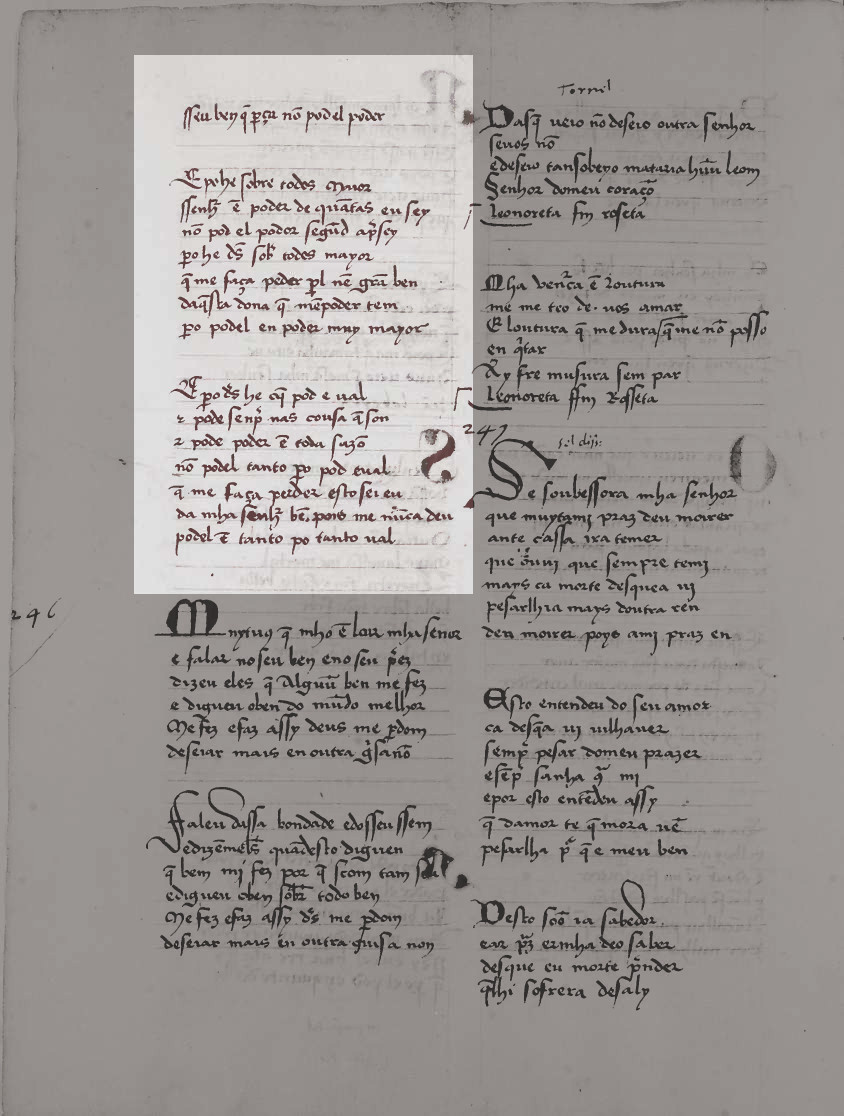 sseu ben q̄ pᵉçā nō pod el poder
E pohe sobre todos Mayor
ssenhʳ ē poder de quātas eu sey
nō pod el podor segūd ap̄sey
po he d̄s sobʳ todos mayor
q̄ me faça peder p̄l nē grā ben
daq̄sta dona q̄ mē poder tem
po podel en poder muy mayor
E po d̄s he q̄ pod e val
⁊ pode senpʳ nas cousa q̄ son
⁊ pode poder ē toda sazō
nō podel tanto po pod eual
q̄ me faça perder esto sei eu
da mha senhʳ bē. pois me nūca deu
podel ē tanto po tanto ual
246
Mnytus q̄ mho ē loir mha senor
e falar no seu ben eno seu pʳez
dizen eles q̄ Alguū ben me fez
e digueu oben do mūdo melhor
Me fez efaz assy deus me p̄dom
deseiar mais en outra gⁱsa nō
Faleu dassa bondade edosseu ssem
e dizēmelꝭ quādesto diguen
q̄ bem mi fez por q̄ scom tam seu
edigueu oben sobʳ todo ben
Me fez efaz assy d̄s me p̄dom
deseiar mais ēn outra guisa non
Tornil
Dasq̄ ueio nō deseio outra senhor
seuos nō
e deseio tan sobeio mataria hūu leom
Senhor domeu coraçō
Leonoreta fin roseta
Mha ventᵃca ē loutura
me me teo de. uos amar
E loutura q̄ me dura q̄ me nō posso
en qⁱtar
Ay fre musura sem par
Leonoreta ffin Rosseta
247
Se soubessora mha senhor
que muytami praz deu moirer
ante cassa ira temer
que ōuui que sempre temi
mays ca morte desquea ui
pesarlhia mays doutra ren
deu moirer poys ami praz en
Esto entendeu do seu amor
ca desq̄a ui uilhauer
sempʳ pesar domeu prazer
esēpʳ sanha qᵃ mi
epor esto entēdeu assy
q̄ damor te q̄ mora uē
pesarlha pʳ q̄ e meu ben
Desto soō ia sabedor
ear pʳz ermha deo saber
desque eu morte pʳnder
q̄lhi sofrera desaly